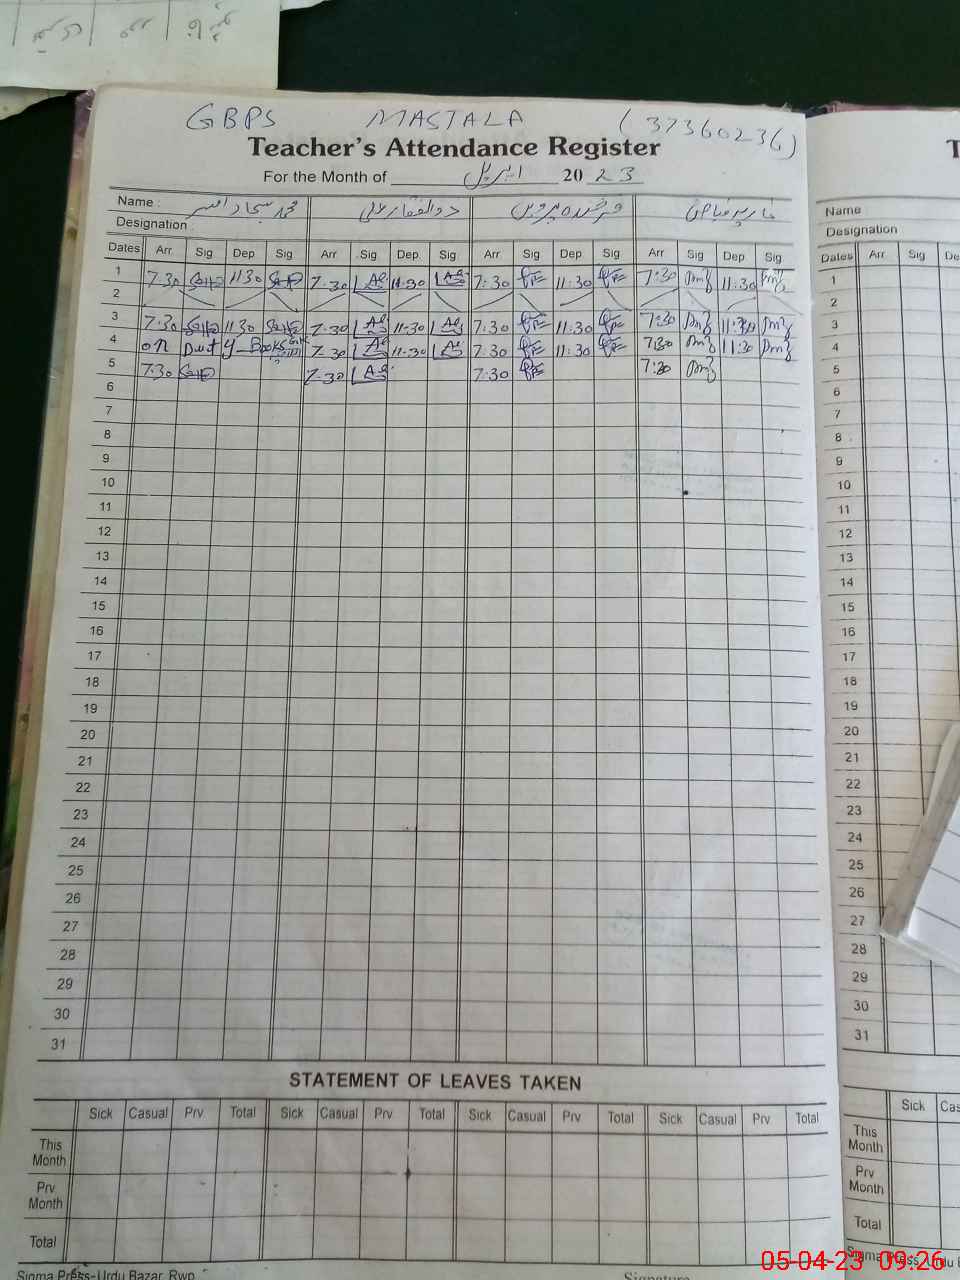 GBPS MASTALA (37360236)
Teacher's Attendance Register
For the Month of اپریل 20 23
Name : محمد سجاد افسر ذوالفقار علی فرخندہ پروین
Designation :
Dates Arr Sig Dep Sig Arr Sig Dep Sig Arr Sig Dep Sig Arr Sig Dep Sig
1 7.30 11.30 7.30 11.30 7:30 11:30 7:30 11:30
2
3 7.30 11.30 7.30 11.30 7:30 11:30 7:30 11:30
4 on Duty Books 7.30 11.30 7:30 11:30 7:30 11:30
5 7.30 7.30 7:30 7:30
6
7
8
9
10
11
12
13
14
15
16
17
18
19
20
21
22
23
24
25
26
27
28
29
30
31
STATEMENT OF LEAVES TAKEN
Sick Casual Prv. Total Sick Casual Prv. Total Sick Casual Prv. Total Sick Casual Prv. Total
This
Month
Prv.
Month
Total
Sigma Press-Urdu Bazar, Rwp. Signature
T
Name
Designation
Dates Arr Sig De
1
2
3
4
5
6
7
8
9
10
11
12
13
14
15
16
17
18
19
20
21
22
23
24
25
26
27
28
29
30
31
Sick Cas
This
Month
Prv.
Month
Total
Sigma Press Urdu B
05-04-23 09:26